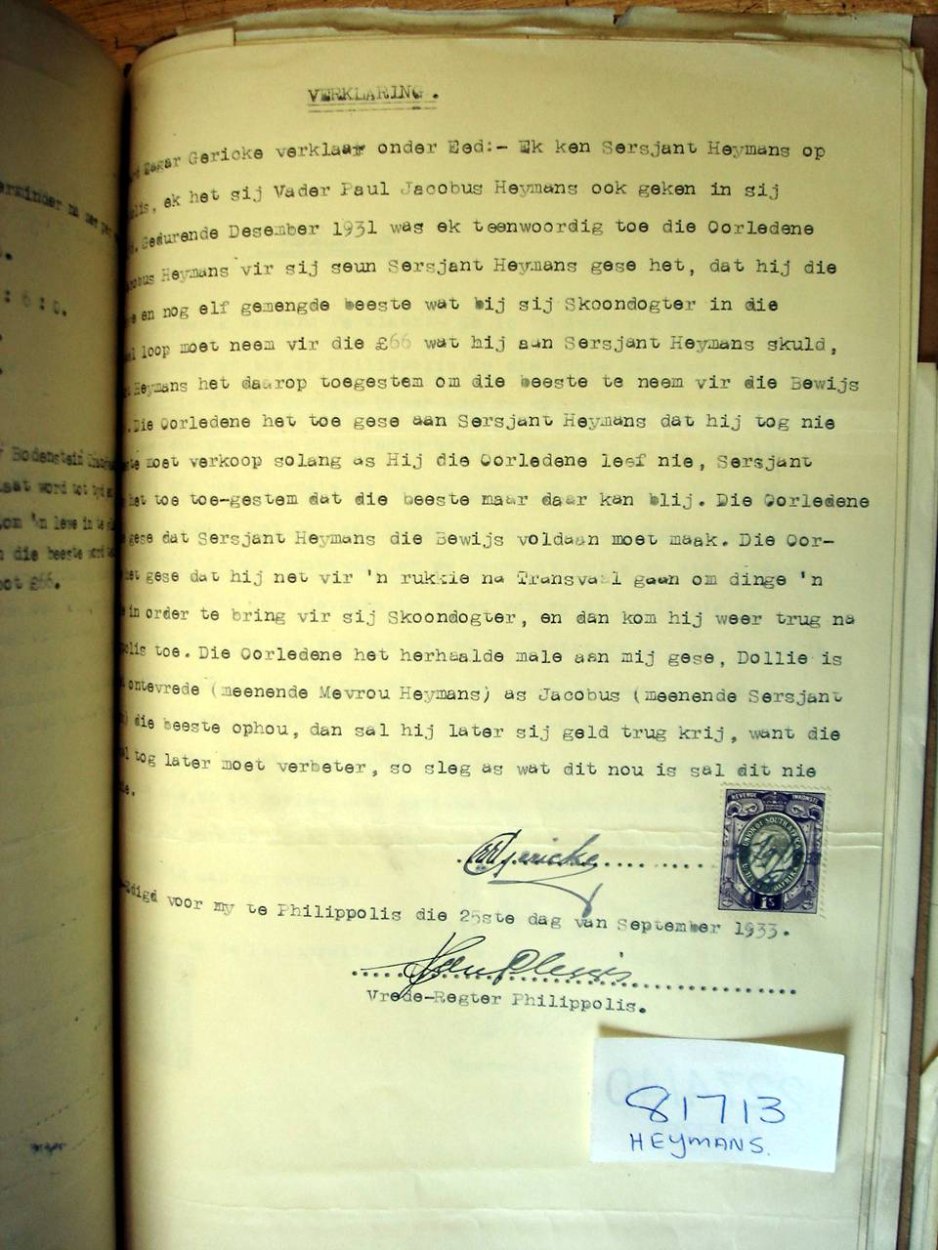 VERKLARING.
Gericke verklaar onder Eed:- Ek ken Sersjant Heymans op
ek het sij Vader Paul Jacobus Heymans ook geken in sij
Gedurende Desember 1931 was ek teenwoordig toe die Oorledene
Heymans vir sij seun Sersjant Heymans gese het, dat hij die
en nog elf gemengde beeste wat bij sij Skoondogter in die
loop moet neem vir die £66 wat hij aan Sersjant Heymans skuld,
Heymans het daarop toegestem om die beeste te neem vir die Bewijs
Die Oorledene het toe gese aan Sersjant Heymans dat hij tog nie
moet verkoop solang as Hij die Oorledene leef nie, Sersjant
het toe toe-gestem dat die beeste maar daar kan blij. Die Oorledene
gese dat Sersjant Heymans die Bewijs voldaan moet maak. Die Oor-
het gese dat hij net vir 'n rukkie na Transvaal gaan om dinge 'n
in order te bring vir sij Skoondogter, en dan kom hij weer trug na
polis toe. Die Oorledene het herhaalde male aan mij gese, Dollie is
ontevrede (meenende Mevrou Heymans) as Jacobus (meenende Sersjant
die beeste ophou, dan sal hij later sij geld trug krij, want die
tog later moet verbeter, so sleg as wat dit nou is sal dit nie
Gericke
REVENUE INKOMSTE
UNION OF SOUTH AFRICA
1s
voor my te Philippolis die 25ste dag van September 1933.
du Plessis
Vrede-Regter Philippolis.
81713
HEYMANS.
Bodenstein
word
om 'n
die beeste
£66.